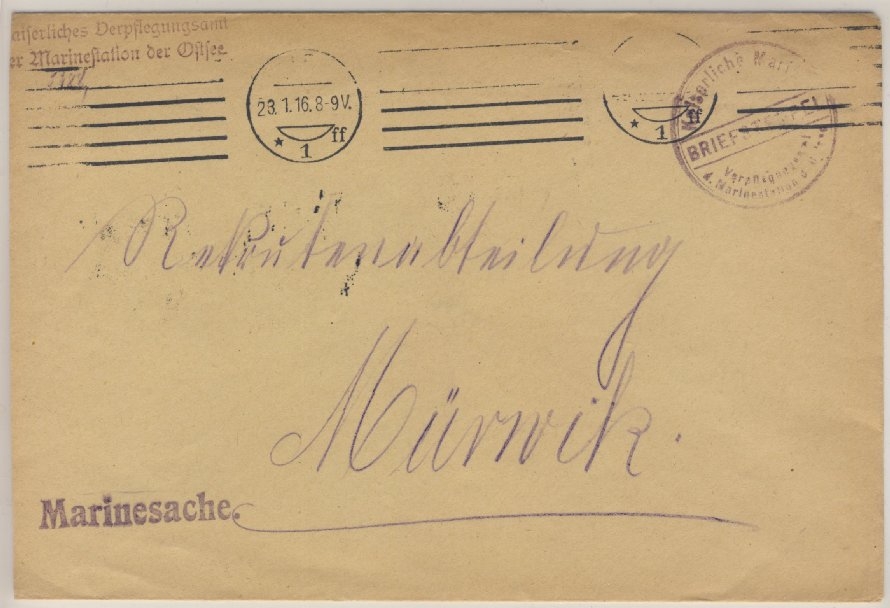 aiserliches Verpflegungsamt
er Marinestation der Ostsee
23.1.16.8-9V.
* 1 ff
* 1 ff
Kaiserliche Mari
BRIEFSTEMPEL
Verpflegungsamt
d. Marinestation d. O.
Rekrutenabteilung
Mürwik.
Marinesache.